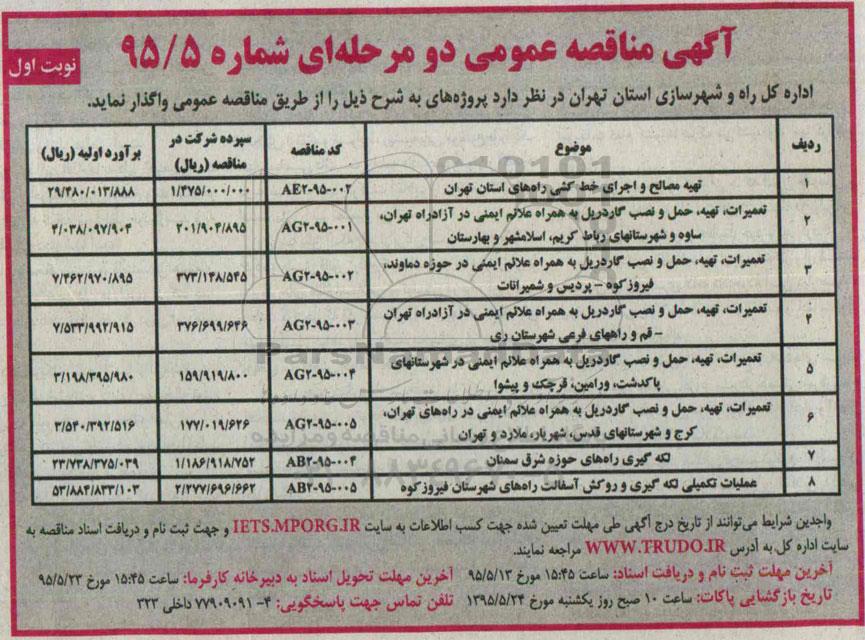 آگهی مناقصه عمومی دو مرحله‌ای شماره ۹۵/۵
نوبت اول
اداره کل راه و شهرسازی استان تهران در نظر دارد پروژه‌های به شرح ذیل را از طریق مناقصه عمومی واگذار نماید.
ردیف موضوع کد مناقصه سپرده شرکت در مناقصه (ریال) برآورد اولیه (ریال)
۱ تهیه مصالح و اجرای خط کشی راه‌های استان تهران AE۲-۹۵-۰۰۲ ۱/۴۷۵/۰۰۰/۰۰۰ ۲۹/۴۸۰/۰۱۳/۸۸۸
۲ تعمیرات، تهیه، حمل و نصب گاردریل به همراه علائم ایمنی در آزادراه تهران،
ساوه و شهرستانهای رباط کریم، اسلامشهر و بهارستان AG۲-۹۵-۰۰۱ ۲۰۱/۹۰۴/۸۹۵ ۴/۰۳۸/۰۹۷/۹۰۴
۳ تعمیرات، تهیه، حمل و نصب گاردریل به همراه علائم ایمنی در حوزه دماوند،
فیروزکوه – پردیس و شمیرانات AG۲-۹۵-۰۰۲ ۳۷۳/۱۴۸/۵۴۵ ۷/۴۶۲/۹۷۰/۸۹۵
۴ تعمیرات، تهیه، حمل و نصب گاردریل به همراه علائم ایمنی در آزادراه تهران
– قم و راههای فرعی شهرستان ری AG۲-۹۵-۰۰۳ ۳۷۶/۶۹۹/۶۴۶ ۷/۵۳۳/۹۹۲/۹۱۵
۵ تعمیرات، تهیه، حمل و نصب گاردریل به همراه علائم ایمنی در شهرستانهای
پاکدشت، ورامین، قرچک و پیشوا AG۲-۹۵-۰۰۴ ۱۵۹/۹۱۹/۸۰۰ ۳/۱۹۸/۳۹۵/۹۸۰
۶ تعمیرات، تهیه، حمل و نصب گاردریل به همراه علائم ایمنی در راه‌های تهران،
کرج و شهرستانهای قدس، شهریار، ملارد و تهران AG۲-۹۵-۰۰۵ ۱۷۷/۰۱۹/۶۲۶ ۳/۵۴۰/۳۹۲/۵۱۶
۷ لکه گیری راه‌های حوزه شرق سمنان AB۲-۹۵-۰۰۴ ۱/۱۸۶/۹۱۸/۷۵۲ ۲۳/۷۳۸/۳۷۵/۰۳۹
۸ عملیات تکمیلی لکه گیری و روکش آسفالت راه‌های شهرستان فیروزکوه AB۲-۹۵-۰۰۵ ۲/۲۷۷/۶۹۶/۶۶۲ ۵۳/۸۸۴/۸۳۳/۱۰۳
واجدین شرایط می‌توانند از تاریخ درج آگهی طی مهلت تعیین شده جهت کسب اطلاعات به سایت IETS.MPORG.IR و جهت ثبت نام و دریافت اسناد مناقصه به
سایت اداره کل به آدرس WWW.TRUDO.IR مراجعه نمایند.
آخرین مهلت ثبت نام و دریافت اسناد: ساعت ۱۵:۴۵ مورخ ۹۵/۵/۱۳ آخرین مهلت تحویل اسناد به دبیرخانه کارفرما: ساعت ۱۵:۴۵ مورخ ۹۵/۵/۲۳
تاریخ بازگشایی پاکات: ساعت ۱۰ صبح روز یکشنبه مورخ ۱۳۹۵/۵/۲۴ تلفن تماس جهت پاسخگویی: ۴- ۷۷۹۰۹۰۹۱ داخلی ۳۲۳